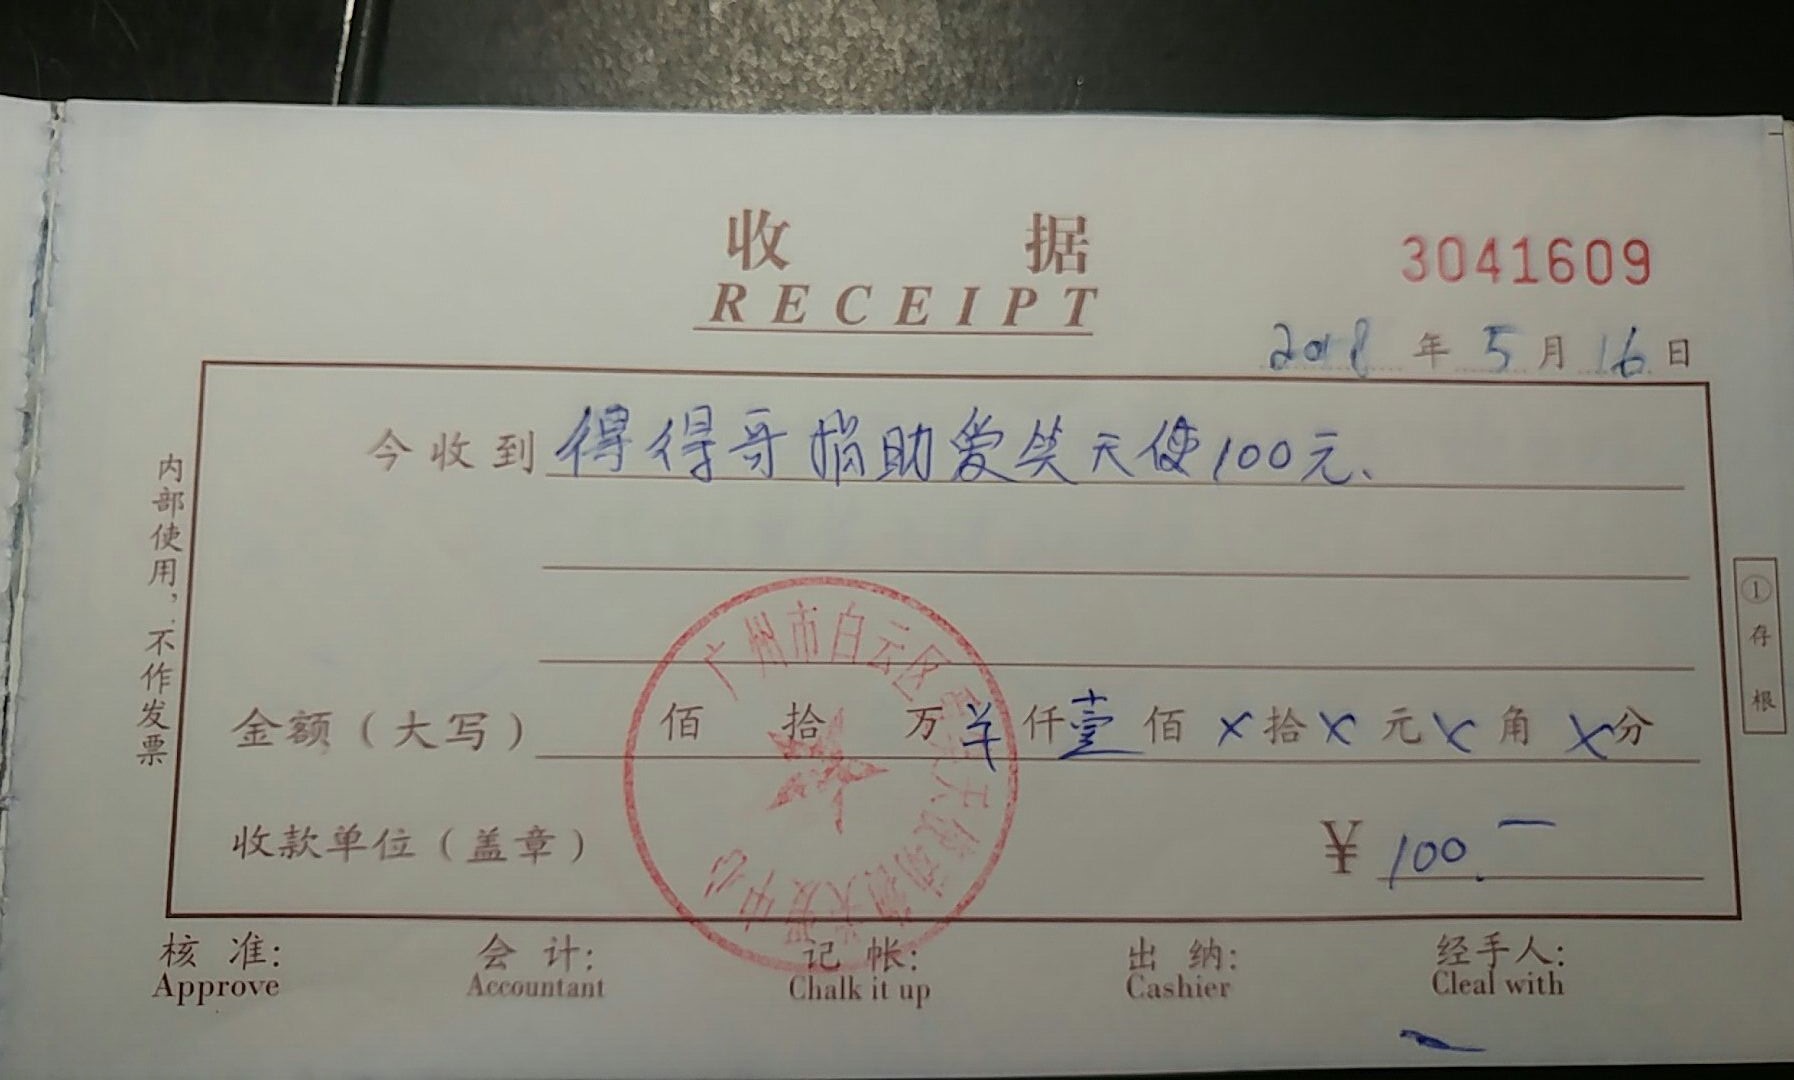 收 据
RECEIPT
3041609
2018 年 5 月 16 日
今收到 得得哥捐助爱笑天使100元、
金额（大写） 佰 拾 万 羊 仟 壹 佰 × 拾 × 元 × 角 × 分
收款单位（盖章） ¥ 100.—
核 准: 会 计: 记 帐: 出 纳: 经手人:
Approve Accountant Chalk it up Cashier Cleal with
内部使用，不作发票
① 存根
广州市白云区 笑天使动物关爱中心